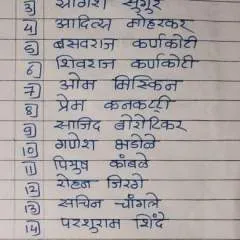 3) योगेश सुगुर
4) आदित्य मोहरकर
5) बसवराज कर्णकोटी
6) शिवराज कर्णकोटी
7) ओम मिस्किन
8) प्रेम कनकट्टी
9) साजिद बोरोटिकर
10) गणेश भडोळे
11) पियुष कांबळे
12) रोहन जिरगे
13) सचिन चौगले
14) परशुराम शिंदे